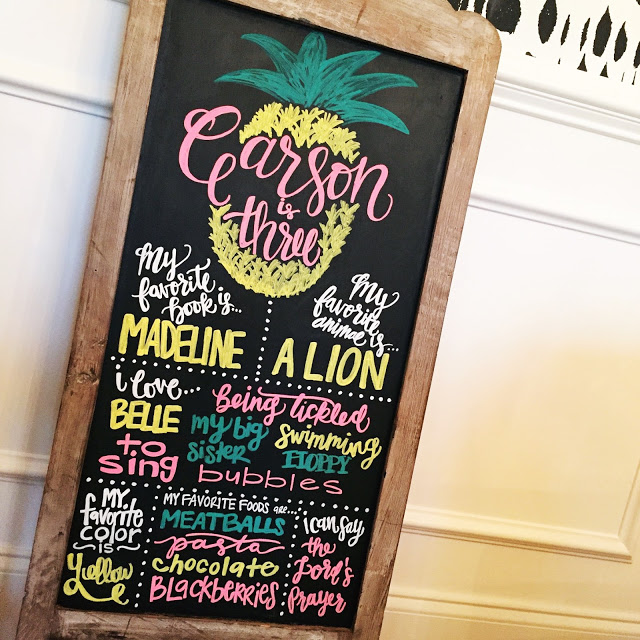 Carson
is
three
My
favorite
book is...
MADELINE
My
favorite
animal is...
A LION
i love...
BELLE
to
sing
being tickled
my big
sister
swimming
FLOPPY
bubbles
MY
favorite
COLOR
IS
Yellow
MY FAVORITE FOODS are...
MEATBALLS
pasta
chocolate
BLACKBERRIES
i can say
the
Lord's
prayer